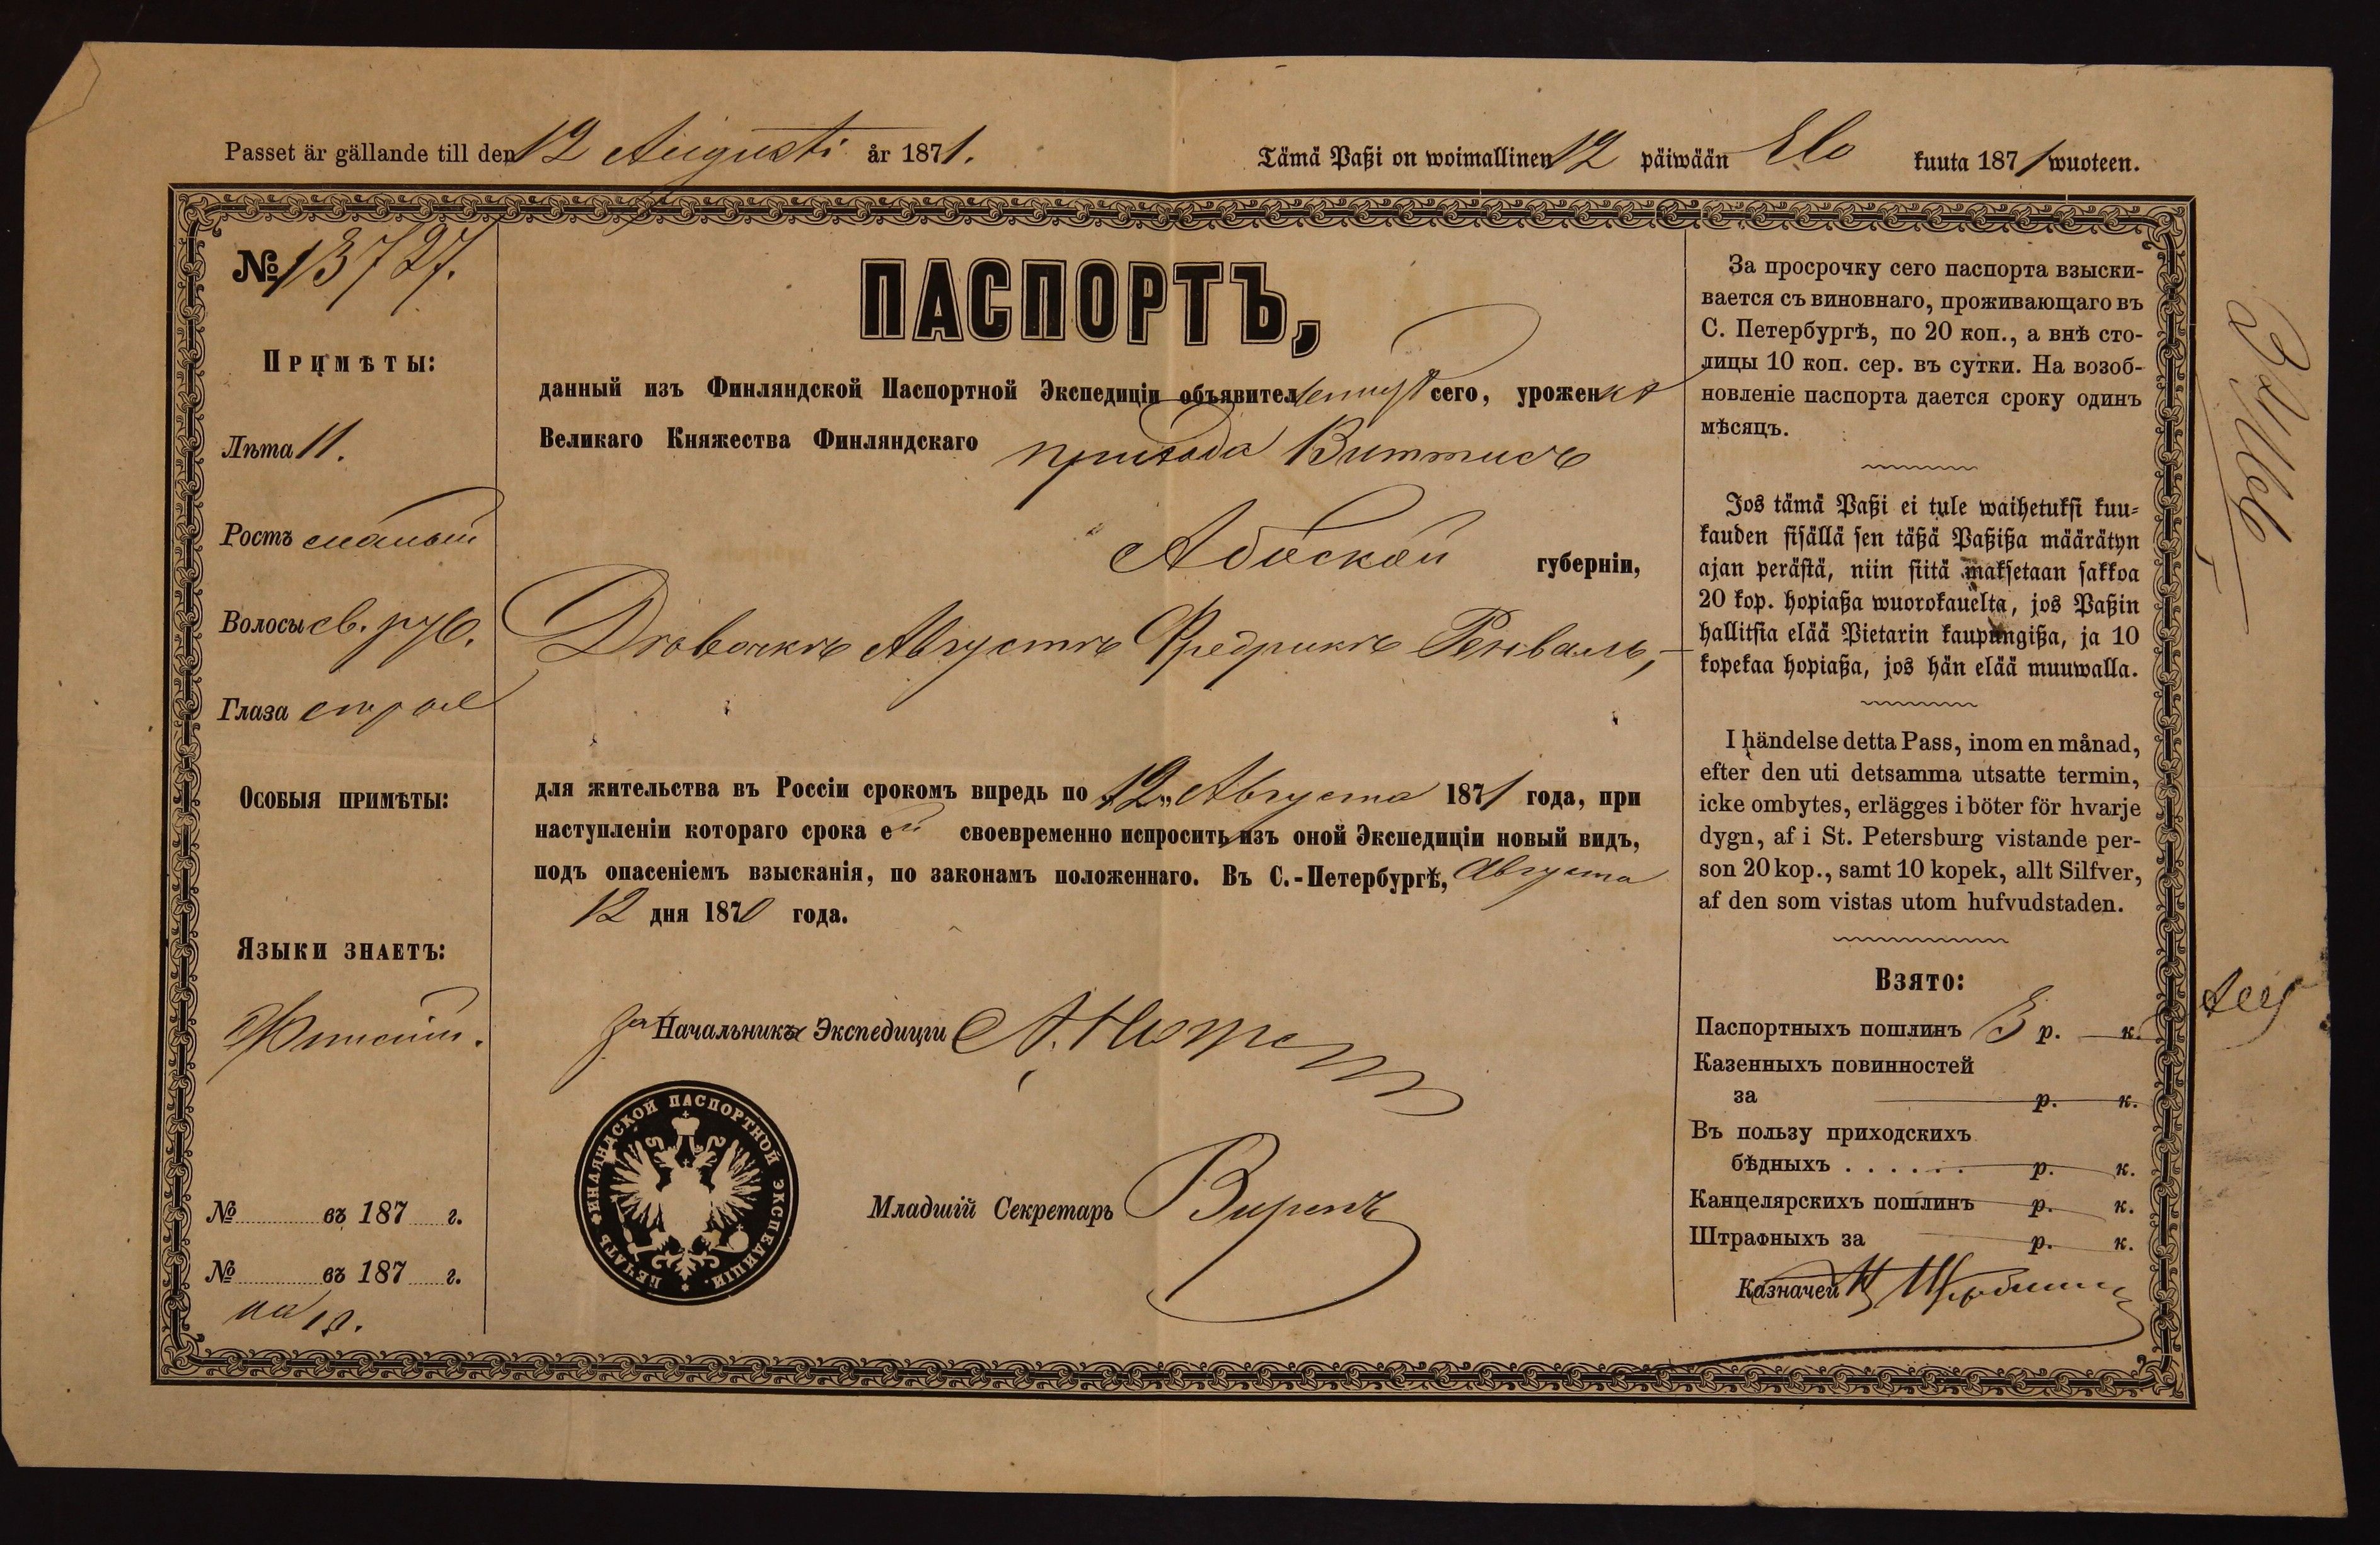 Passet är gällande till den 12 Augusti år 1871.
Tämä Paßi on woimallinen 12 päiwään Elo kuuta 1871 wuoteen.
№ 13727.
Примѣты:
Лѣта 11.
Ростъ малый
Волосы св. рус.
Глаза
Особыя примѣты:
Языки знаетъ:
Финскій.
№ въ 187 г.
№ въ 187 г.
ПАСПОРТЪ,
данный изъ Финляндской Паспортной Экспедиціи объявительницѣ сего, уроженкѣ
Великаго Княжества Финляндскаго прихода Виттисъ
Абоской губерніи,
Дѣвочкѣ Августѣ Фредрикѣ Ренваль,
для жительства въ Россіи срокомъ впредь по 12 Августа 1871 года, при
наступленіи котораго срока ей своевременно испросить изъ оной Экспедиціи новый видъ,
подъ опасеніемъ взысканія, по законамъ положеннаго. Въ С.-Петербургѣ, Августа
12 дня 1870 года.
за Начальника Экспедиціи
ПЕЧАТЬ ФИНЛЯНДСКОЙ ПАСПОРТНОЙ ЭКСПЕДИЦІИ.
Младшій Секретарь Виренъ
За просрочку сего паспорта взыски-
вается съ виновнаго, проживающаго въ
С. Петербургѣ, по 20 коп., а внѣ сто-
лицы 10 коп. сер. въ сутки. На возоб-
новленіе паспорта дается сроку одинъ
мѣсяцъ.
Jos tämä Paßi ei tule waihetuksi kuu-
kauden sisällä sen täßä Paßißa määrätyn
ajan perästä, niin siitä maksetaan sakkoa
20 kop. hopiaßa wuorokauelta, jos Paßin
hallitsia elää Pietarin kaupungißa, ja 10
kopekaa hopiaßa, jos hän elää muuwalla.
I händelse detta Pass, inom en månad,
efter den uti detsamma utsatte termin,
icke ombytes, erlägges i böter för hvarje
dygn, af i St. Petersburg vistande per-
son 20 kop., samt 10 kopek, allt Silfver,
af den som vistas utom hufvudstaden.
Взято:
Паспортныхъ пошлинъ 3 р. — к.
Казенныхъ повинностей
за р. к.
Въ пользу приходскихъ
бѣдныхъ . . . . . . р. к.
Канцелярскихъ пошлинъ р. к.
Штрафныхъ за р. к.
Казначей